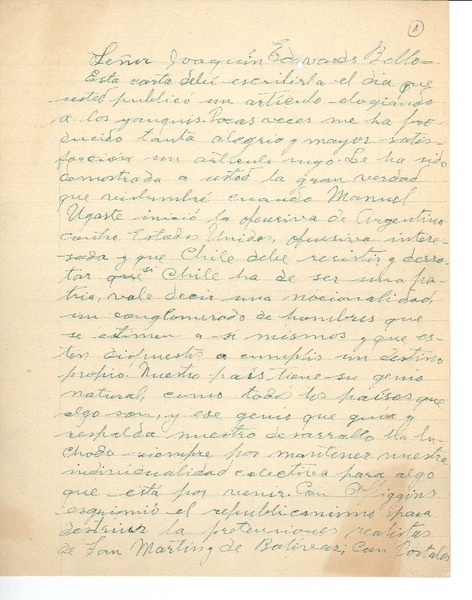 1
Señor Joaquín Edwards Bello=
Esta carta debí escribirla el dia que
usted publicó un artículo elogiando
a los yanquis. Pocas veces me ha pro-
ducido tanta alegria y mayor satis-
facción un artículo suyo. Le ha sido
demostrada a usted la gran verdad
que vislumbré cuando Manuel
Ugarte inició la ofensiva de Argentina
contra Estados Unidos, ofensiva intere-
sada y que Chile debe resistir y derro-
tar que si Chile ha de ser una pa-
tria, vale decir una nacionalidad
un conglomerado de hombres que
se estiman a si mismos y que es-
ten dispuestos a cumplir un destino
propio. Nuestro país tiene su genio
natural, como todos los países que
algo son, y ese genio que guia y
respalda nuestro desarrollo ha lu-
chado siempre por mantener nuestra
individualidad colectiva para algo
que está por venir. Con O'Higgins
esgrimió el republicanismo para
destruir las pretensiones realistas
de San Martín y de Bolívar; con Portales